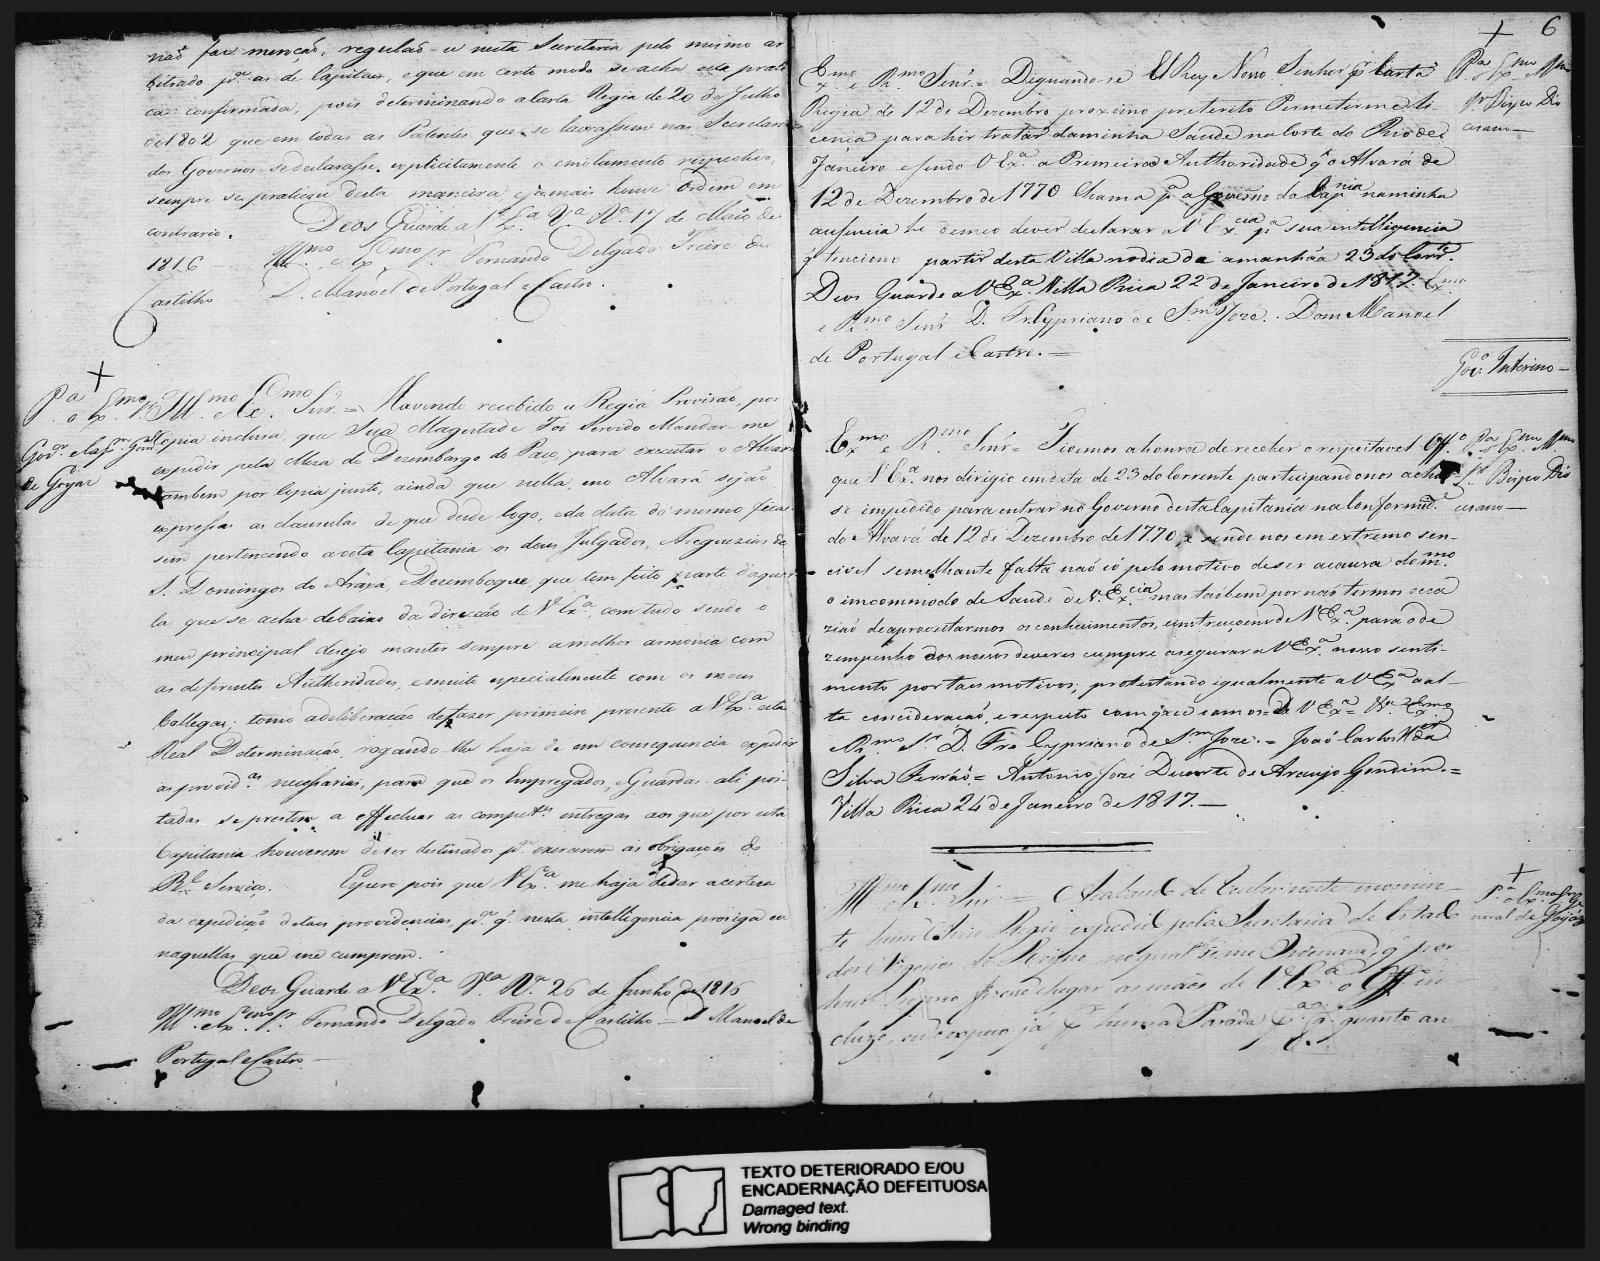 naõ faz mençaõ, regulaõ-se nesta Secretaria pelo mesmo ar
bitrado pª. as de Capitaes, e que em certo modo se acha esta prati
ca confirmada, pois determinando a Carta Regia de 20 de Julho
de 1802 que em todas as Patentes que se lavrassem nas Secretari
dos Governos se declarasse explicitamente o emolumento respectivo,
sempre se praticou desta maneira, e jamais houve Ordem em
contrario. Deos Guarde a V. Exª. Vª. Rª. 17 de Maio de
1816 Illmo. e Exmo. Sr. Fernando Delgado Freire de
Castilho D. Manoel de Portugal e Castro.
Pª. o Exmo. Sr.
Govor. e Capm. Genal.
de Goyaz
Illmo. e Exmo. Snr. = Havendo recebido a Regia Provisão, por
Copia inclusa, que Sua Magestade Foi Servido Mandar-me
expedir pela Meza do Dezembargo do Paço, para executar o Alvará
tambem por Copia junto, ainda que nella, e no Alvará sejaõ
expressas as clausulas de que desde logo, e da data do mesmo ficas
sem pertencendo a esta Capitania os dous Julgados, e Freguezias de
S. Domingos do Araxá, e Dezemboque que tem feito parte d'aquel
la que se acha debaixo da direcção de V. Exª., com tudo sendo o
meu principal desejo manter sempre a melhor armonia com
as deferentes Authoridades, e muito especialmente com os meus
Collegas; tomo a deliberaçaõ de fazer primeiro presente a V. Exª. esta
Real Determinaçaõ, rogando-lhe haja de em consequencia expedir
as providas. necessarias, para que os Empregados, e Guardas ali pos-
tadas se prestem a effectuar as competes. entregas aos que por esta
Capitania houverem de ser destinados pª. exercerem as obrigaçoẽs do
Rl. Serviço. Espero pois que V. Exª. me haja de dar a certeza
da expedição de taes providencias, pª. q'. nesta intelligencia prosiga eu
naquellas que me cumprem.
Deos Guarde a V. Exª. Vª. Rª. 26 de Junho de 1816
Illmo. e Exmo. Sr. Fernando Delgado Freire de Castilho = D. Manoel de
Portugal e Castro
6
Pª. o Exmo. e Rmo.
Sr. Bispo Dio
cesano
Exmo. e Rmo. Senr. = Dignando-se El Rey Nosso Senhor por Carta
Regia de 12 de Dezembro proximo preterito Permetirme li
cença para hir tratar da minha Saude na Corte do Rio de
Janeiro e sendo V. Exª. a Primeira Authoridade q' o Alvará de
12 de Dezembro de 1770 Chama pª. o Governo da Capnia. na minha
ausencia he do meo dever declarar a V. Excia. pª. sua intelligencia
q' tenciono partir desta Villa no dia de amanhãa 23 do Corre.
Deos Guarde a V. Exª. Villa Rica 22 de Janeiro de 1817. Exmo.
e Rmo. Senr. D. Fr. Cypriano de Sm. Jozé. Dom Manoel
de Portugal e Castro. =
Govo. Interino
Pª. o Exmo. e Rmo.
Sr. Bispo Dio
cesano
Exmo. e Rmo. Snr = Tivemos a honra de receber o respeitavel Offo.
que V. Exª. nos dirigio em data de 23 do Corrente participandonos achar
se impedido para entrar no Governo desta Capitánia na Conformide.
do Alvará de 12 de Dezembro de 1770, e sendo nos em extremo sen-
civel semelhante falta naõ só pelo motivo de ser acauza do mmo.
o imcommodo de Saude de V. Excia. mas taõbem por naõ termos occa
ziaõ de aproveitarmos os conhecimentos, e instruçoens de V. Exª. para o de
zempenho dos nossos deveres cumpre asegurar a V. Exª. nosso senti-
mento por taes motivos; protestando igualmente a V. Exª. a al-
ta consideraçaõ, e respeito com que somos = De V. Exª. = Illmo. Exmo.
e Rmo. Sr. D. Frei Cypriano de Sm. Joze. = Joaõ Carlos Xer. da
Silva Ferraõ = Antonio José Duarte de Araujo Gondim. =
Villa Rica 24 de Janeiro de 1817. —
Pª. o Exmo. Sr. Ge
neral de Goyáz
Illmo. e Exmo. Snr. = Acabando de receber neste momen-
to hum Officio Regio expedido pela Secretaria de Estado
dos Negocios do Reino, no qual se me Ordenava q' por
hum Proprio fizesse chegar as mãos de V. Exª. o Off. in
cluzo, o expeço já por huma Parada
TEXTO DETERIORADO E/OU
ENCADERNAÇÃO DEFEITUOSA
Damaged text.
Wrong binding